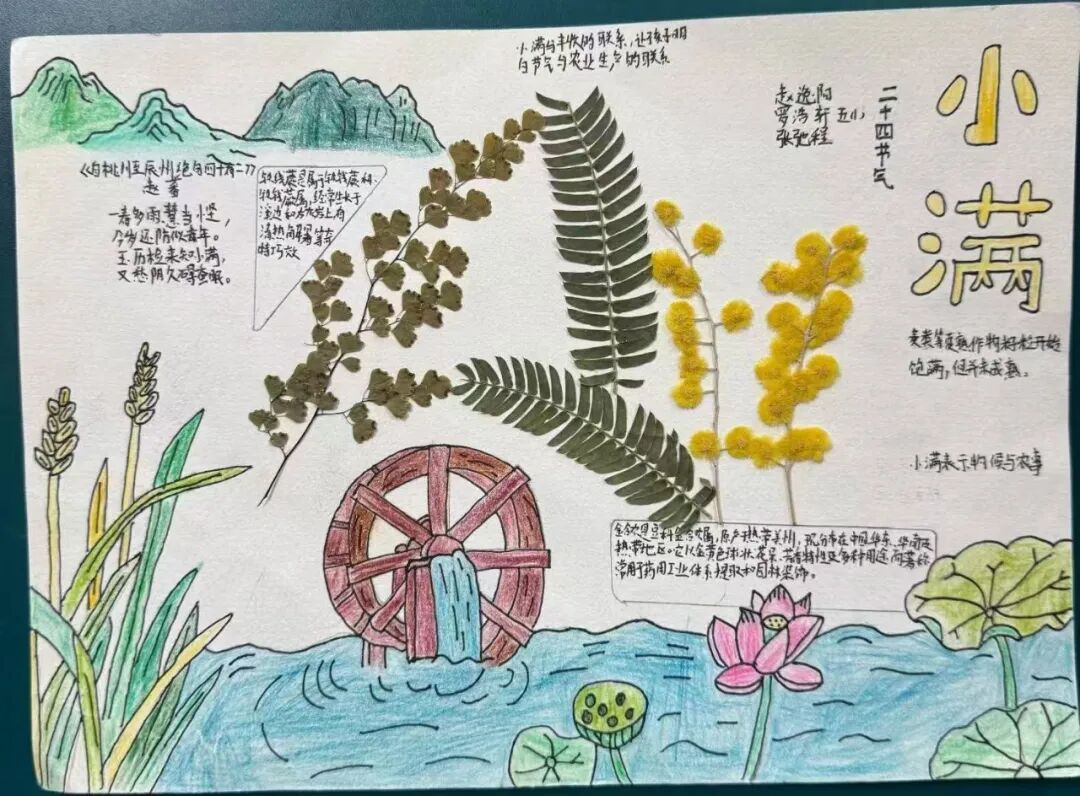 小满与丰收的联系,让孩子明
白节气与农业生产的联系
小满
二十四节气
赵逸阳
罗浩轩 五(1)
张弛程
《自桃川至辰州绝句四十有二》
赵蕃
一春多雨慧当悭,
今岁还防似去年。
玉历检来知小满,
又愁阴久碍蚕眠。
铁线蕨是属于铁线蕨科
铁线蕨属,经常生长于
溪边和石灰岩上有
清热解毒等奇
特巧效
麦类等夏熟作物籽粒开始
饱满,但并未成熟。
小满表示物候与农事
金合欢是豆科金合欢属,原产于热带美州,现分布在中国华东、华南及
热带地区。它以金黄色球状花朵、芳香特性及多种用途而著称
常用于药用工业体系提取和园林装饰。